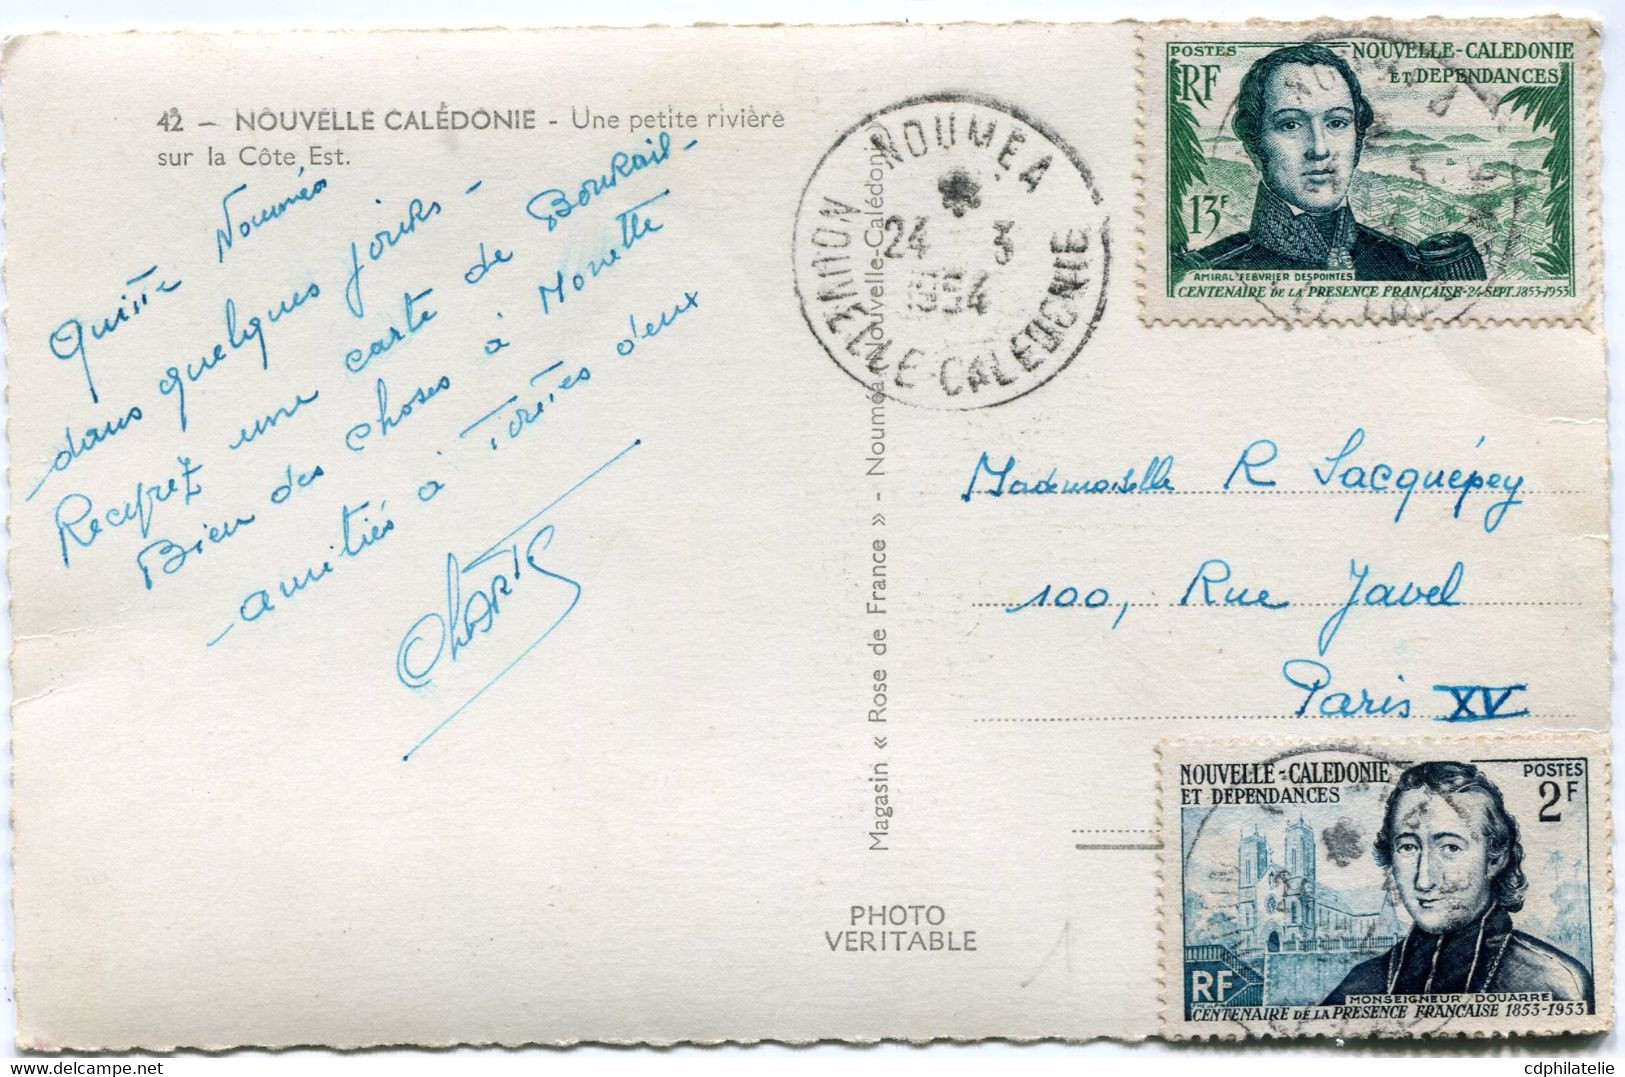 42 — NOUVELLE CALÉDONIE - Une petite rivière
sur la Côte Est.
Quitte Nouméa
dans quelques jours -
Recevez une carte de Bourail -
Bien des choses à Monette
amitiés à Toutes d'eux
Magasin « Rose de France » - Nouméa (Nouvelle-Calédonie)
PHOTO
VERITABLE
NOUMEA
24 3
1954
NOUVELLE-CALEDONIE
POSTES NOUVELLE-CALEDONIE
ET DEPENDANCES
RF
13F
AMIRAL FEBVRIER DESPOINTES
CENTENAIRE DE LA PRESENCE FRANÇAISE-24 SEPT. 1853-1953
Mademoiselle R Sacquépey
100, Rue Javel
Paris XV
NOUVELLE-CALEDONIE POSTES
ET DEPENDANCES 2F
RF
MONSEIGNEUR DOUARRE
CENTENAIRE DE LA PRESENCE FRANÇAISE 1853-1953
1
cdphilatelie